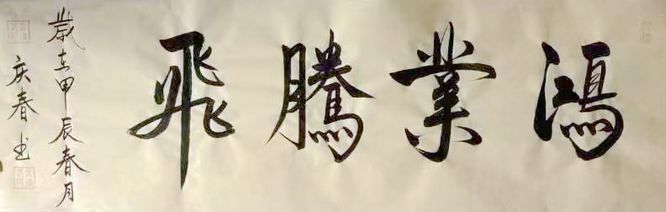 鴻業騰飛
歲在甲辰春月
庆春书